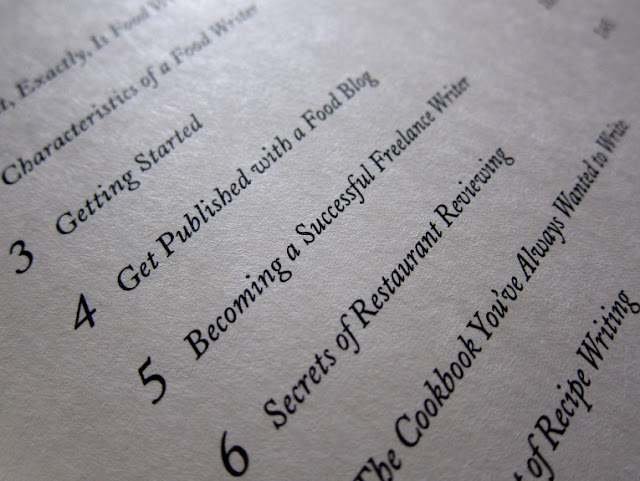 , Exactly, Is Food W
Characteristics of a Food Writer
3 Getting Started
4 Get Published with a Food Blog
5 Becoming a Successful Freelance Writer
6 Secrets of Restaurant Reviewing
The Cookbook You've Always Wanted to Write
of Recipe Writing